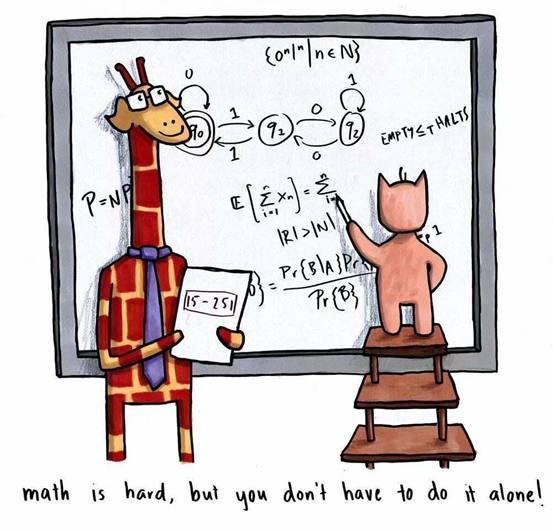 {0ⁿ1ⁿ|n∈N}
0
1
q0
1
q1
0
q2
1
0
EMPTY≤T HALTS
P=NP
𝔼[∑ⁿᵢ₌₁ Xₙ] = ∑ⁿᵢ₌
|ℝ|>|ℕ|
} = Pr{B|A}Pr
Pr{B}
15-251
math is hard, but you don't have to do it alone!